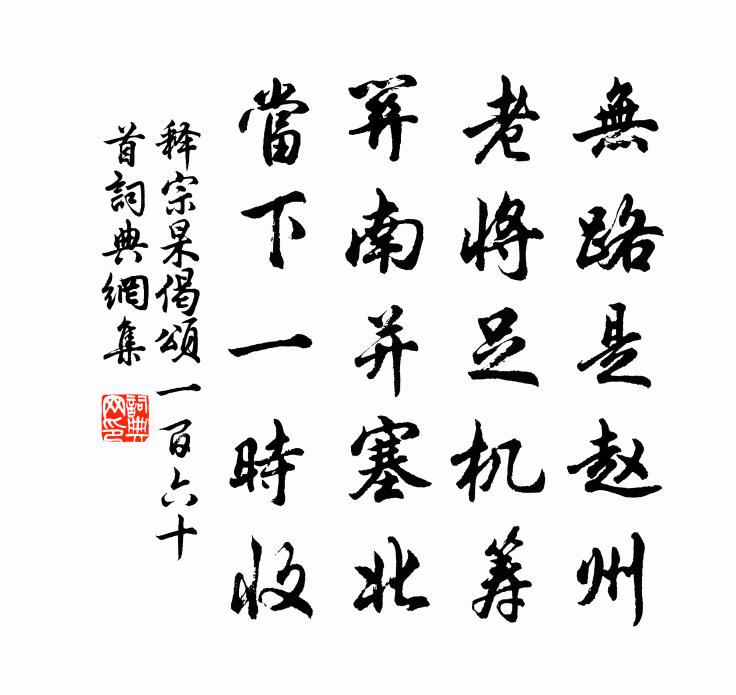 無路是赵州
老將足机筹
關南并塞北
當下一時收
释宗杲偈頌一百六十
首詞典網集
詞典
网印